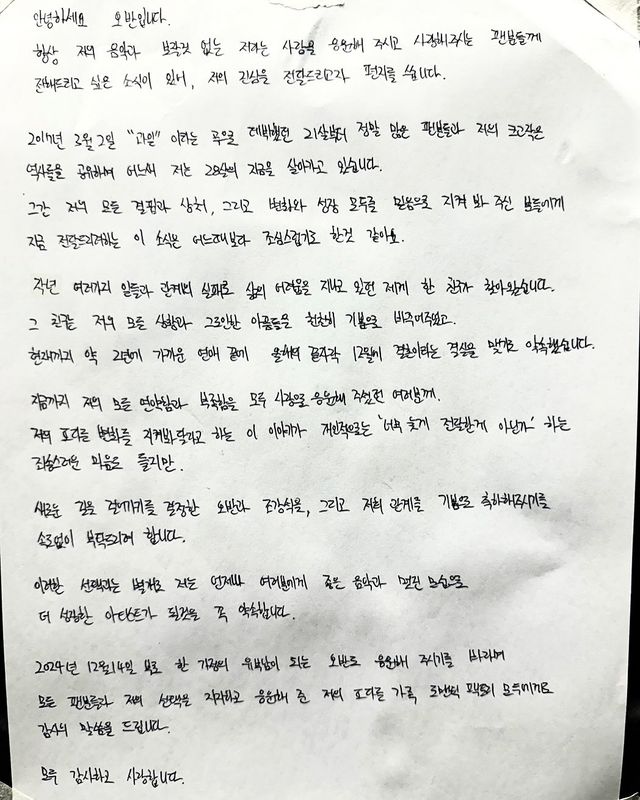 안녕하세요 오반입니다.
항상 저의 음악과 보잘것 없는 저라는 사람을 응원해 주시고 사랑해주시는 팬분들께
전해드리고 싶은 소식이 있어, 저의 진심을 전달드리고자 편지를 씁니다.
2017년 3월 2일 "과일" 이라는 곡으로 데뷔했던 21살부터 정말 많은 팬분들과 저의 크고작은
역사들을 공유하며 어느새 저는 28살의 지금을 살아가고 있습니다.
그간 저의 모든 결핍과 상처, 그리고 변화와 성장 모두를 믿음으로 지켜 봐 주신 분들에게
지금 전달드리려하는 이 소식은 어느때보다 조심스럽기도 한것 같아요.
작년 여러가지 일들과 관계의 실패로 삶의 어려움을 지나고 있던 제게 한 친구가 찾아왔습니다.
그 친구는 저의 모든 상황과 그로인한 아픔들을 천천히 기쁨으로 바꾸어주었고.
현재까지 약 2년에 가까운 연애 끝에 올해의 끝자락 12월에 결혼이라는 결실을 맺기로 약속했습니다.
지금까지 저의 모든 연약함과 부족함을 모두 사랑으로 응원해 주셨던 여러분께.
저의 또다른 변화를 지켜봐달라고 하는 이 이야기가 개인적으로는 '너무 늦게 전달한게 아닌가' 하는
죄송스러운 마음도 들지만.
새로운 길을 걸어가기를 결정한 오반과 조강석을, 그리고 저희 관계를 기쁨으로 축하해주시기를
소로없이 부탁드리려 합니다.
이러한 선택과는 별개로 저는 언제나 여러분에게 좋은 음악과 멋진 모습으로
더 성장한 아티스트가 될것을 꼭 약속합니다.
2024년 12월 14일 부로 한 가정의 유부남이 되는 오반도 응원해 주시기를 바라며
모든 팬분들과 저의 선택을 지지하고 응원해 준 저의 또다른 가족 로맨틱 팩토리 모두에게도
감사의 말씀을 드립니다.
모두 감사하고 사랑합니다.